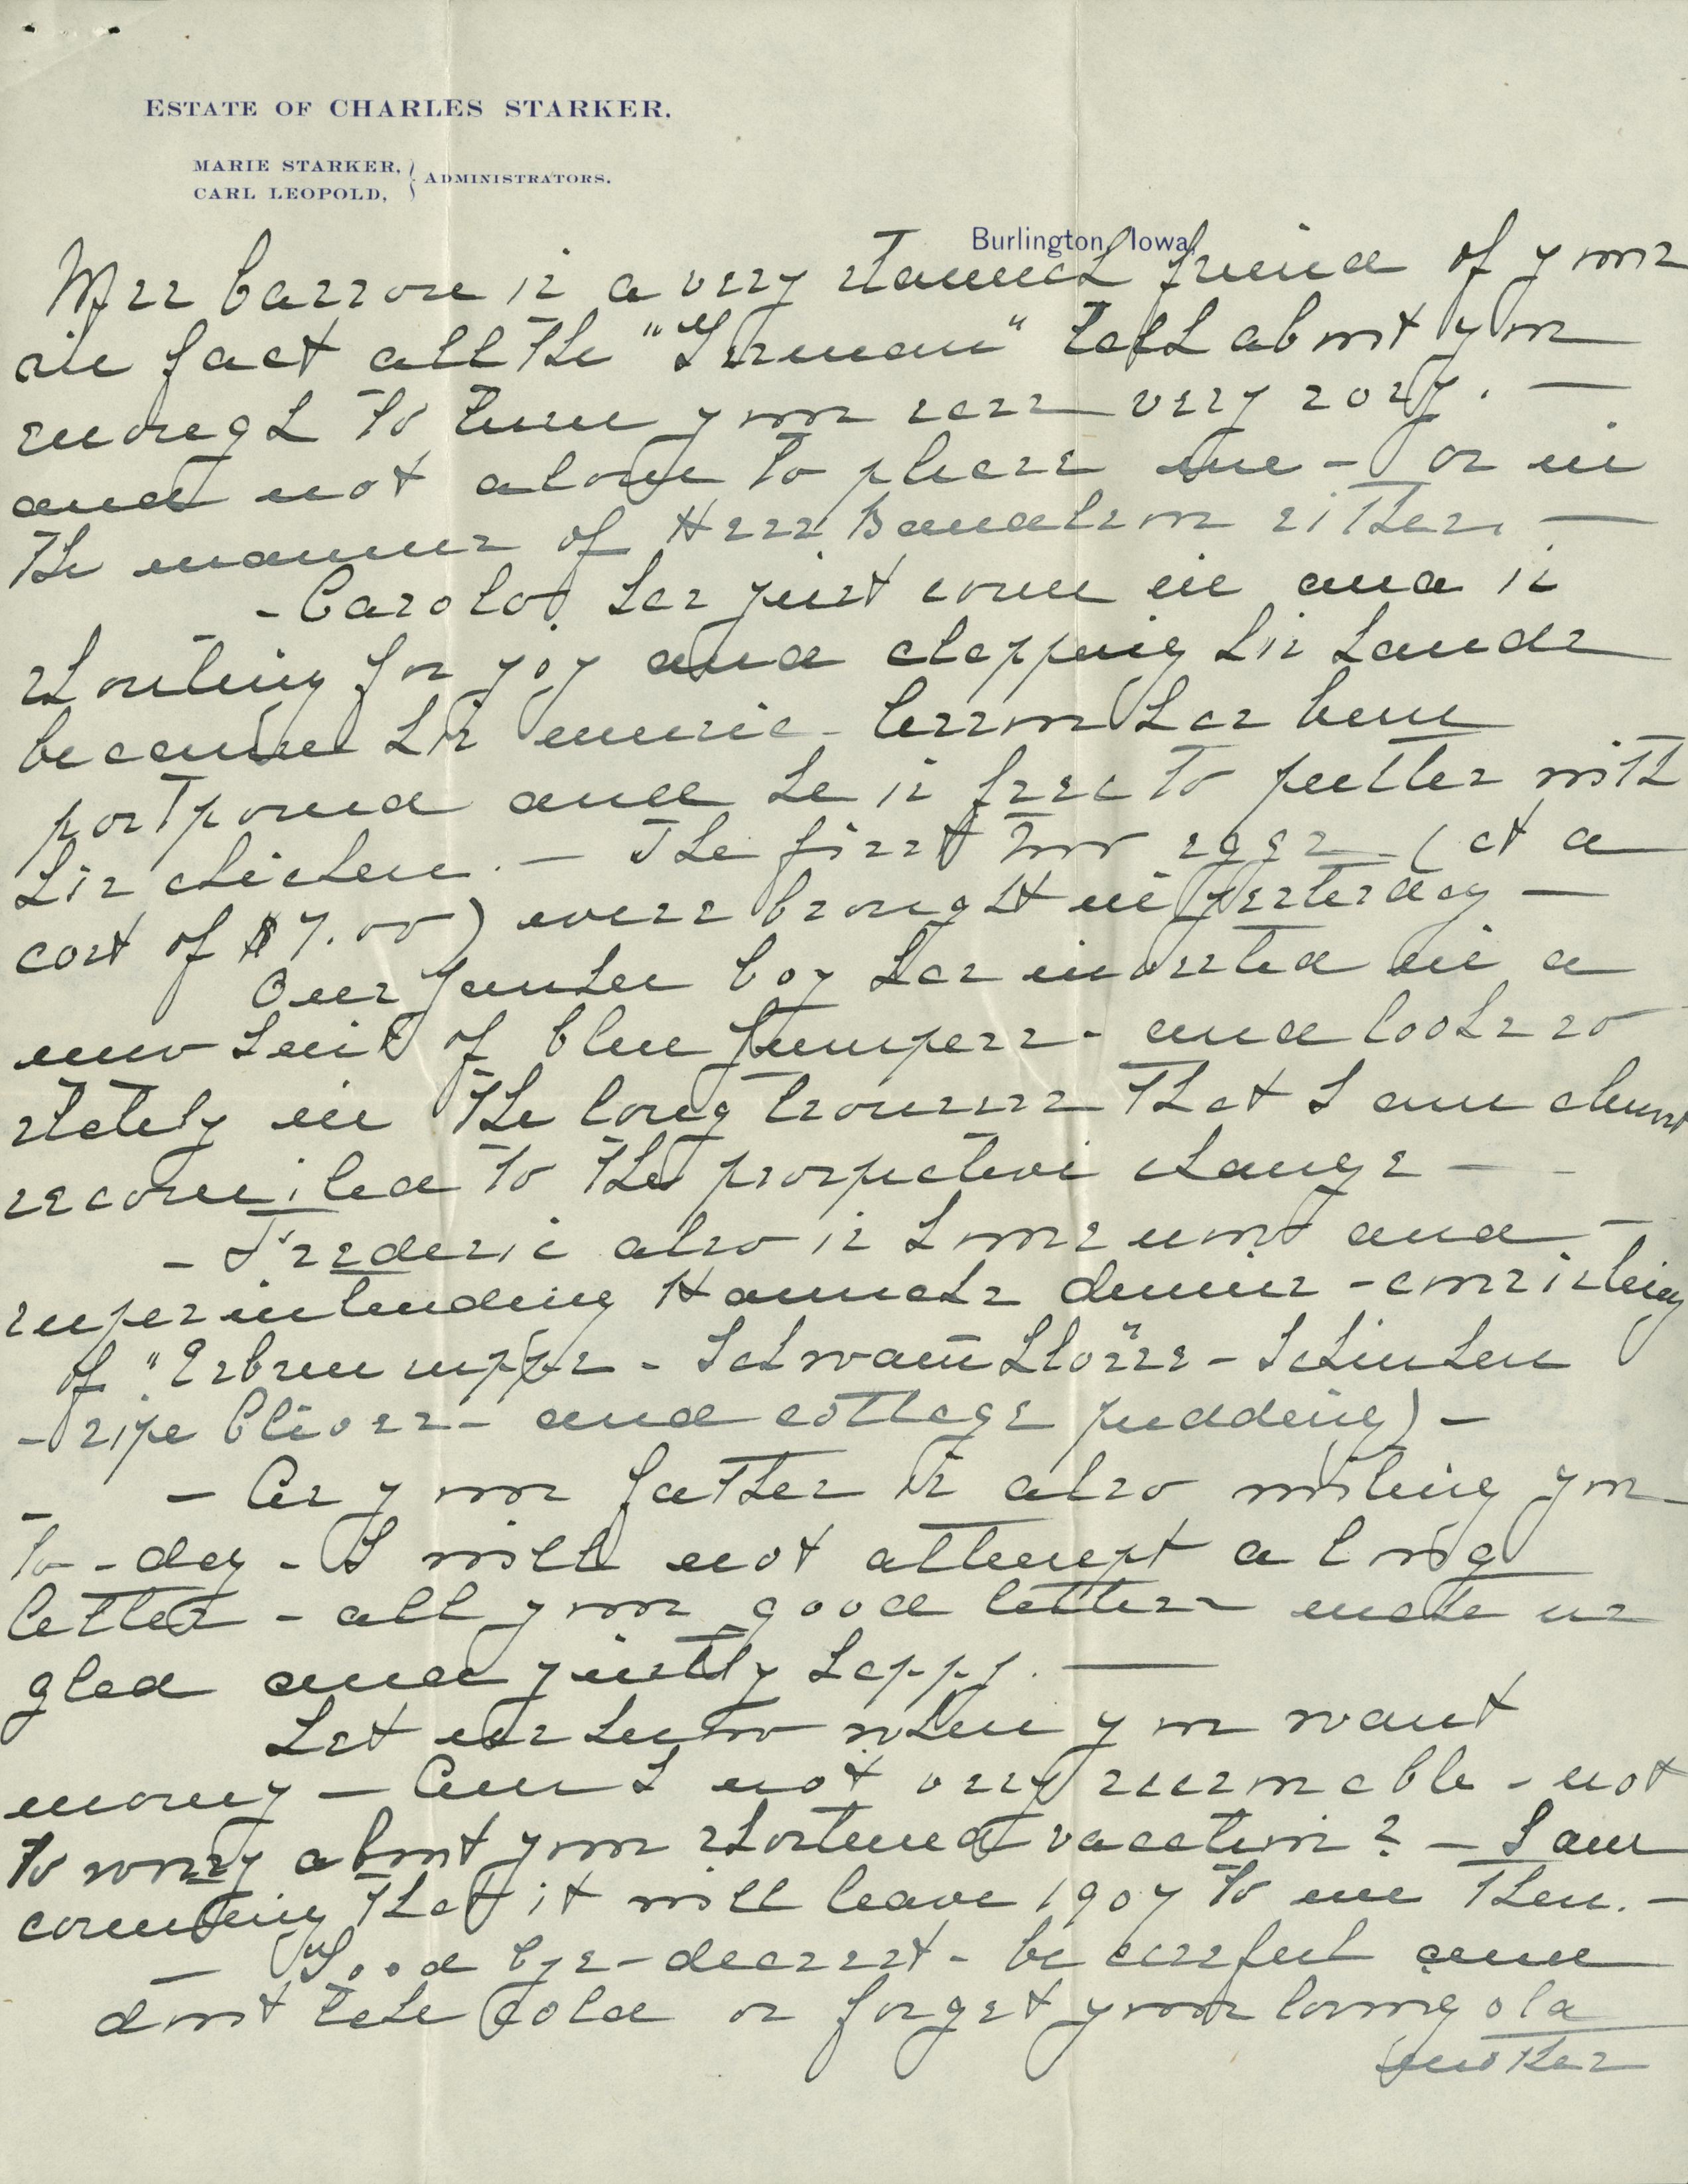 ESTATE OF CHARLES STARKER.
MARIE STARKER,
CARL LEOPOLD, } ADMINISTRATORS.
Burlington, Iowa
Mrs Carson is a very staunch friend of your
in fact all the "German" talk about you
enough to turn your ears very rosy. —
and not alone to please me - or in
the manner of Herr Bandlow either. —
- Carolo has just come in and is
shouting for joy and clapping his hands
because his music - lesson has been
postponed and he is free to putter with
his chicken. — The first two eggs (at a
cost of $7.00) were brought in yesterday —
Our Junker boy has invested in a
new suit of blue jumpers - and looks so
stately in the long trousers that I am almost
reconciled to the prospective change —
- Frederic also is homeward and —
superintending Hannchs dinner - consisting
of "Erbsensuppe - Schwammklösse - Schinken
- ripe olives - and cottage pudding) —
- As your father is also writing you
to-day - I will not attempt a long
letter - all your good letters make us
glad and justly happy. —
Let us know when you want
money — Am I not very reasonable - not
to worry about your shortened vacation? — I am
counting that it will leave 1907 to me then. —
— Good bye - dearest - be careful and
dont take cold or forget your loving old
mother